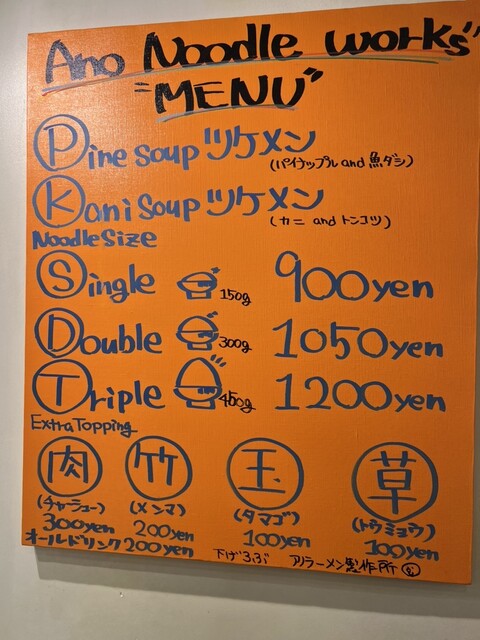 Ano Noodle works
"MENU"
Pine Soup ツケメン
(パイナップル and 魚ダシ)
Kani Soup ツケメン
(カニ and トンコツ)
Noodle Size
Single 150g 900yen
Double 300g 1050yen
Triple 450g 1200yen
Extra Topping
肉 竹 玉 草
(チャーシュー) (メンマ) (タマゴ) (トウミョウ)
300yen 200yen 100yen 100yen
オールドリンク 200yen
アノラーメン製作所